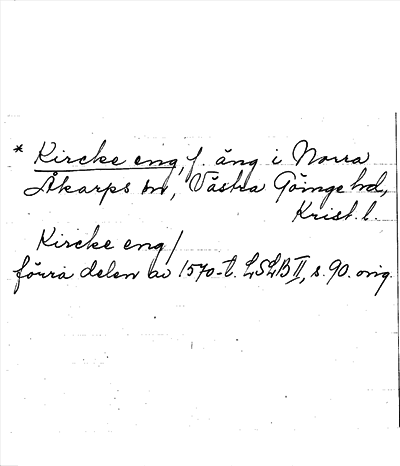 * Kircke eng, f. äng i Norra
Åkarps sn, Västra Göinge hd,
Krist. l.
Kircke eng/
förra delen av 1570-t. LSLB II, s. 90. orig.